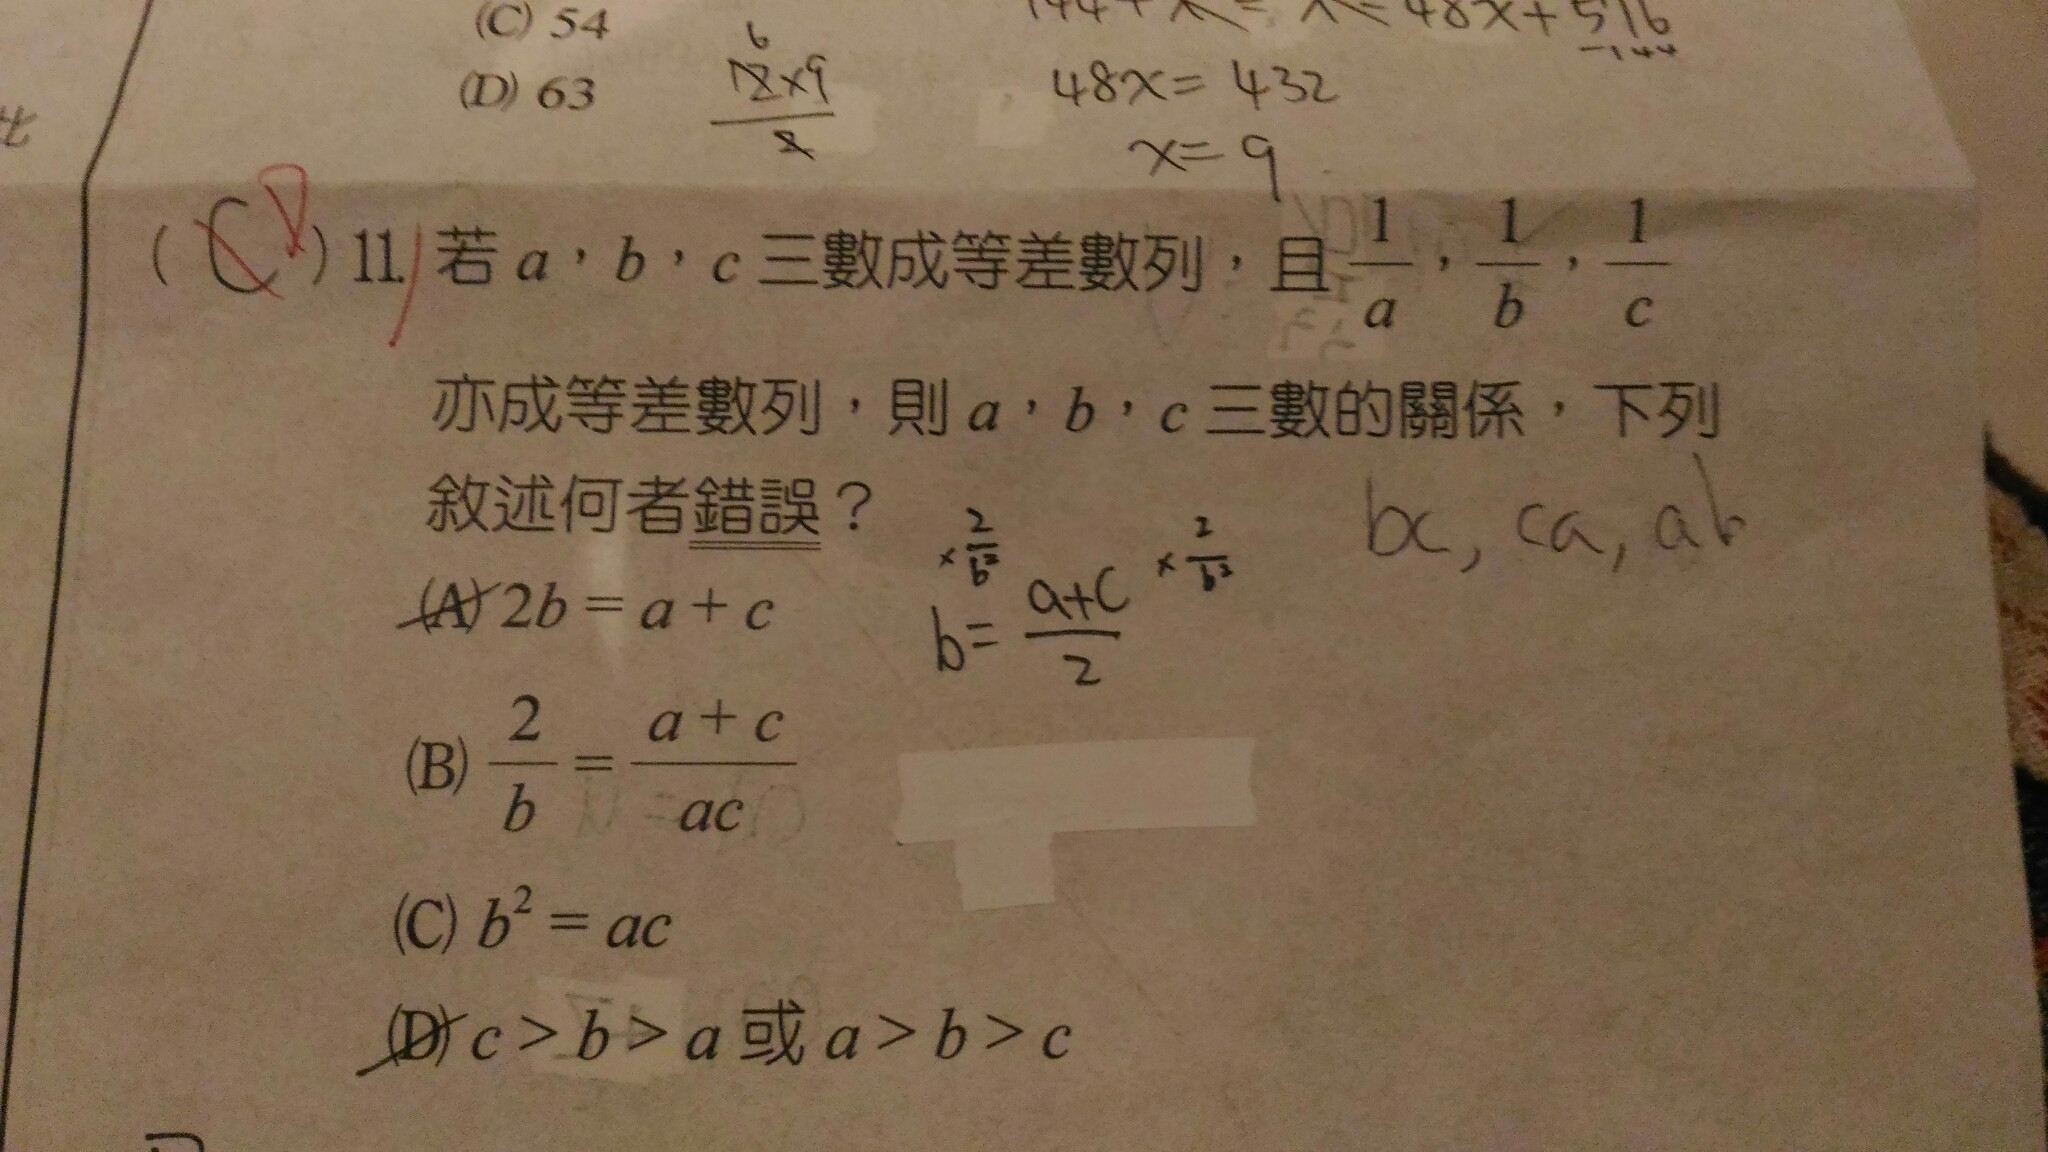 (C) 54
(D) 63
6
12×9
2
48x = 432
x = 9
( C D ) 11. 若 a，b，c 三數成等差數列，且 1/a，1/b，1/c
亦成等差數列，則 a，b，c 三數的關係，下列
敘述何者錯誤？
bc, ca, ab
(A) 2b = a + c
×2/b² b = (a+c)/2 ×2/b²
(B) 2/b = (a + c)/ac
(C) b² = ac
(D) c > b > a 或 a > b > c